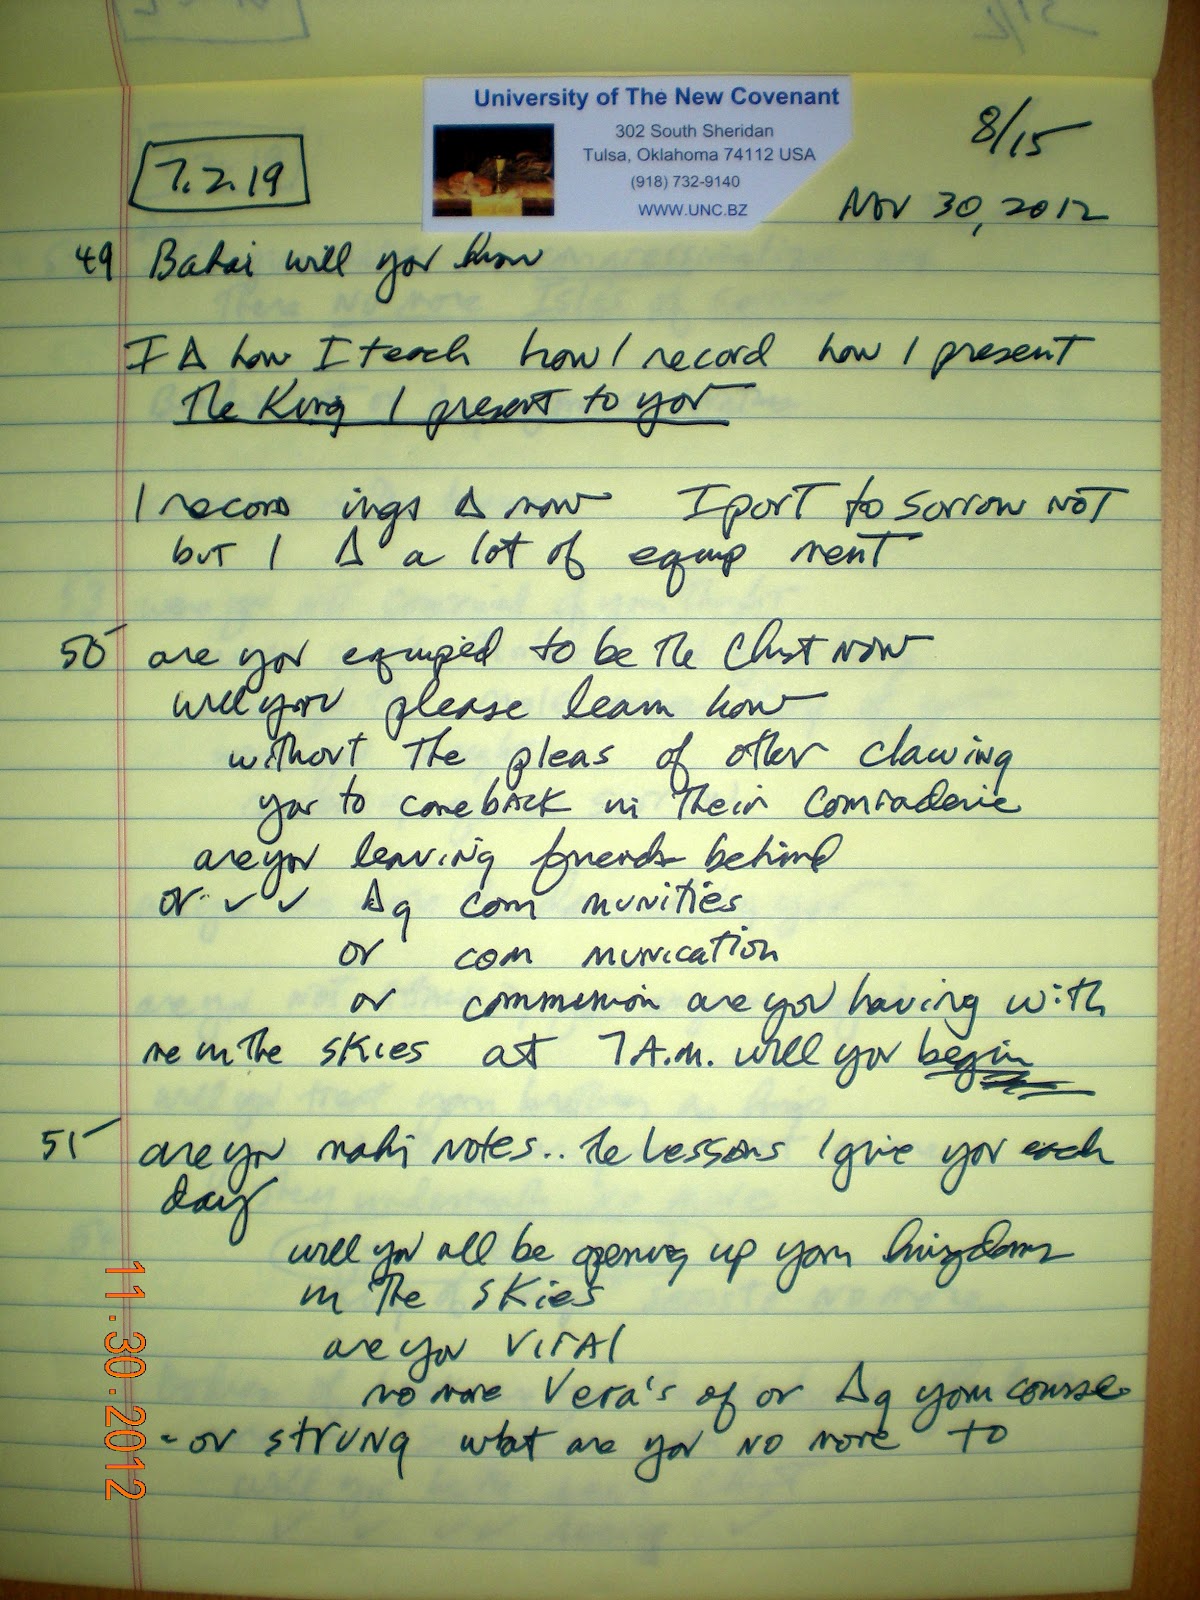 University of The New Covenant
302 South Sheridan
Tulsa, Oklahoma 74112 USA
(918) 732-9140
WWW.UNC.BZ
8/15
7.2.19
Nov 30, 2012
49 Bahai will you know
I Δ how I teach how I record how I present
The King I present to you
I record ings Δ now I port to sorrow NOT
but I Δ a lot of equip ment
50 are you equiped to be the Chst now
will you please learn how
without the pleas of other clawing
you to come back in their comraderie
are you leaving friends behind
or ✓ ✓ Δg com munities
or com munication
or communion are you having with
me in the skies at 7 A.M. will you begin
51 are you maki notes.. the Lessons I give you each
day
will you all be opening up your kingdoms
in the skies
are you viral
no more Vera's of or Δg your course
or strung what are you no more to
11.30.2012